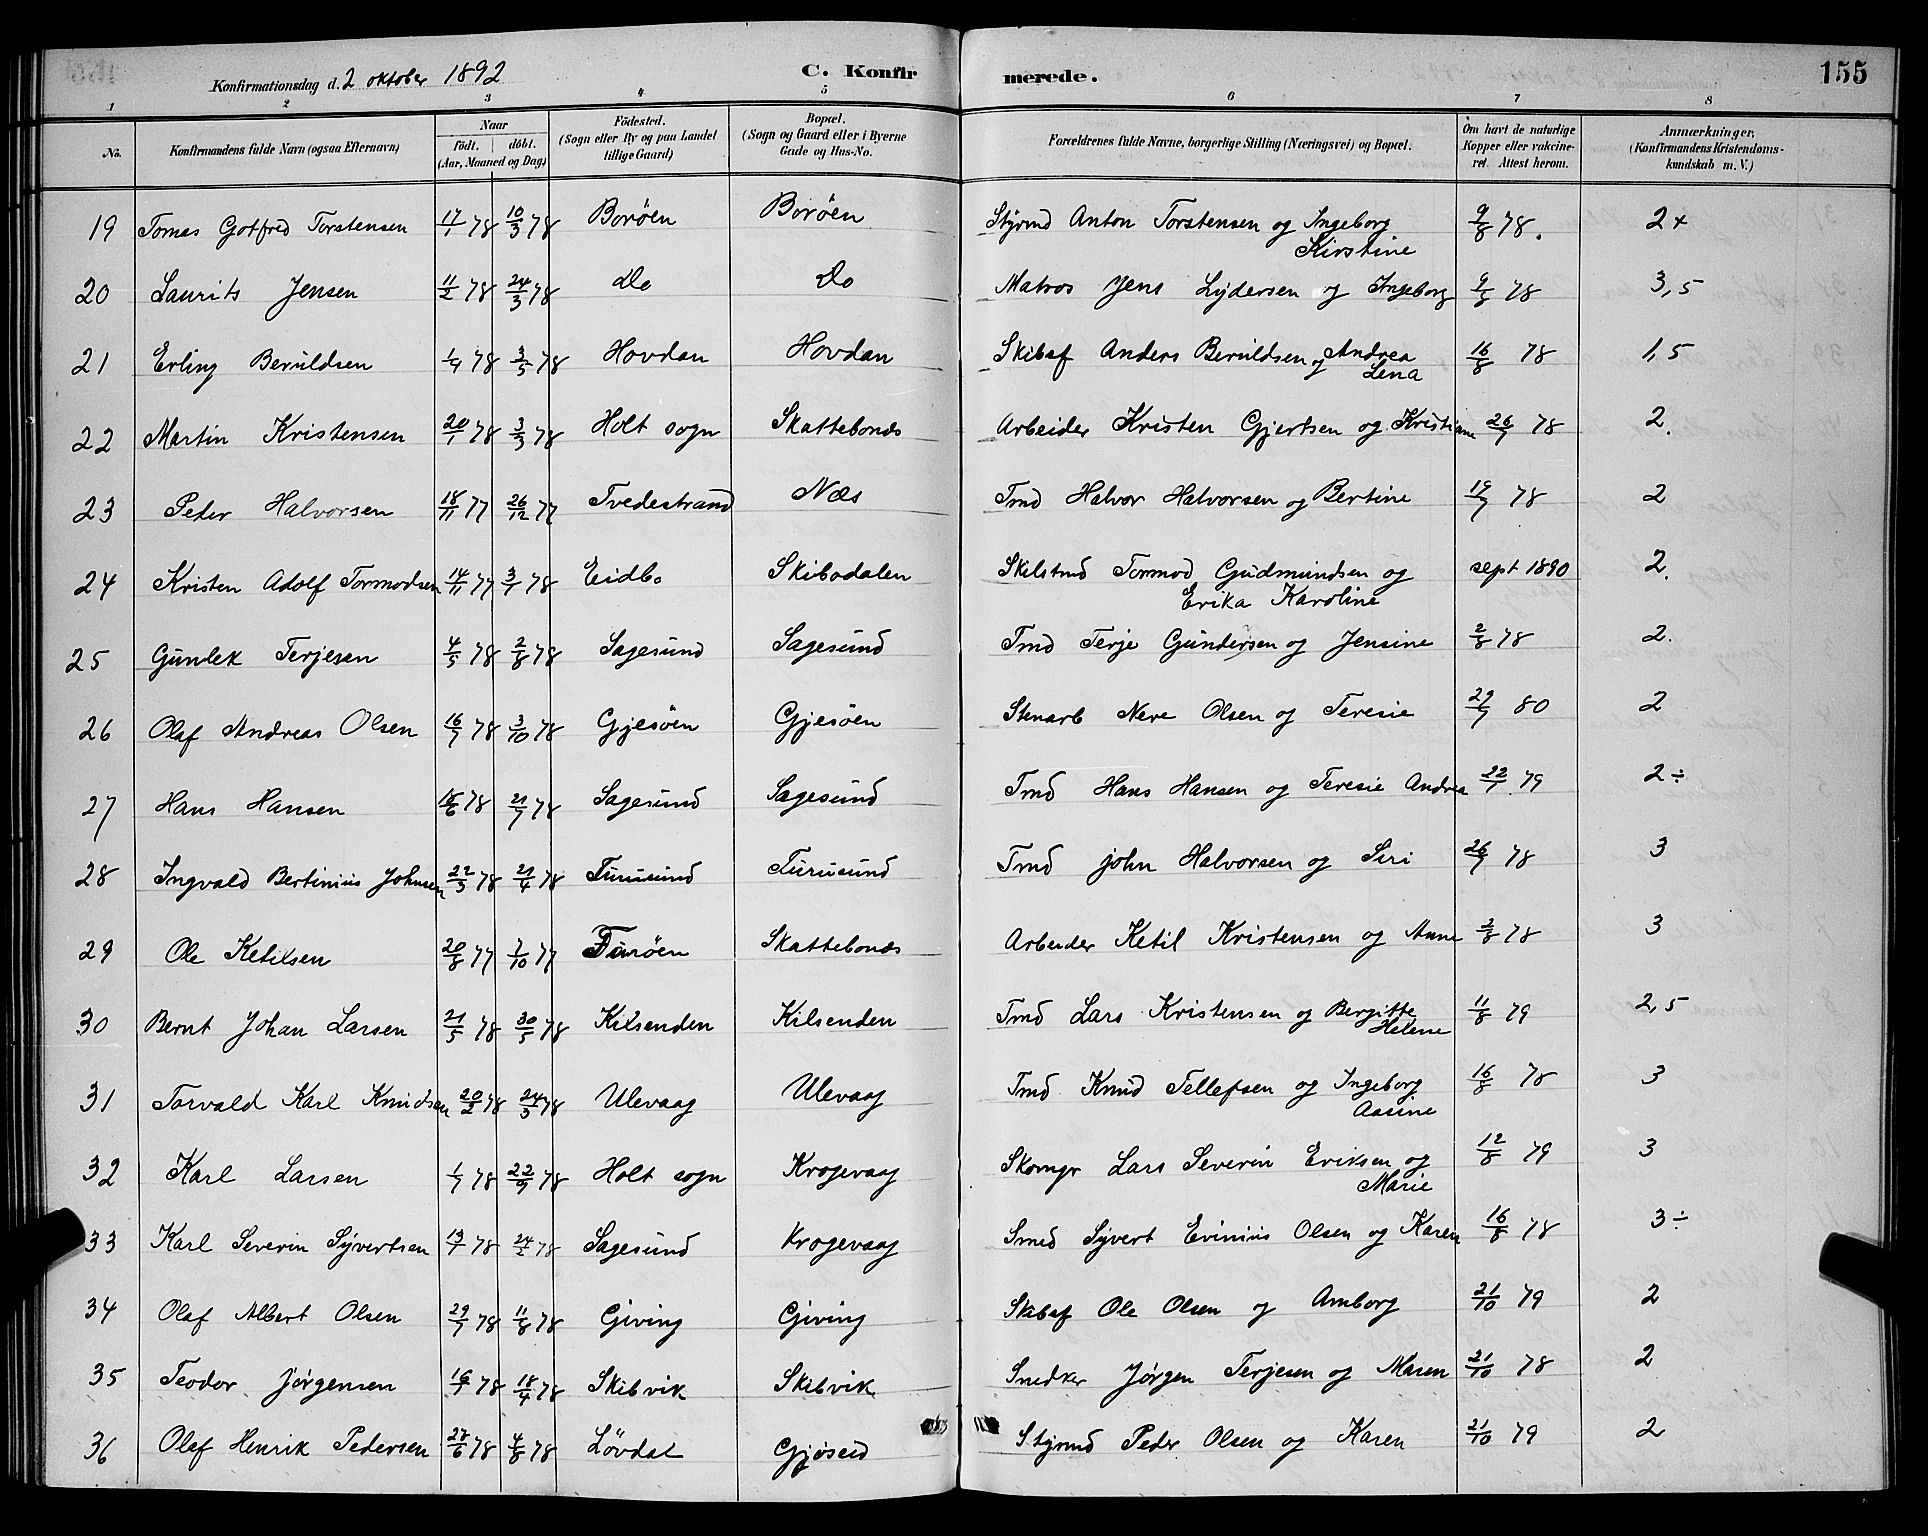 Konfirmationsdag d. 2 oktober 1892 C. Konfirmerede. 155
1 2 3 4 5 6 7 8
No. Konfirmandens fulde Navn (ogsaa Efternavn) Naar födt. döbt. (Aar, Maaned og Dag) Födested. (Sogn eller By og paa Landet tillige Gaard) Bopæl. (Sogn og Gaard eller i Byerne Gade og Hus-No. Forældrenes fulde Navne, borgerlige Stilling (Næringsvei) og Bopæl. Om havt de naturlige Kopper eller vakcineret. Attest herom. Anmærkninger. (Konfirmandens Kristendomskundskab m. V.)
19 Tomas Gotfred Torstensen 17/1 78 10/3 78 Boröen Boröen Styrmd Anton Torstensen og Ingeborg Kirstine 9/8 78. 2+
20 Laurits Jensen 11/2 78 24/3 78 do Do Matros Jens Lydersen og Ingeborg 9/8 78 3,5
21 Erling Beruldsen 1/4 78 3/5 78 Hovdan Hovdan Skibsf Anders Beruldsen og Andrea Lena 16/8 78 1,5
22 Martin Kristensen 20/1 78 3/3 78 Holt sogn Skattebonæs Arbeider Kristen Gjertsen og Kristiane 26/7 78 2.
23 Peder Halvorsen 18/11 77 26/12 77 Tvedestrand Næs Tmd Halvor Halvorsen og Bertine 19/7 78 2
24 Kristen Adolf Tormodsen 14/11 77 3/1 78 Eidbo Skibodalen Tormod Gudmundsen og Erika Karoline sept 1890 2.
25 Gunlek Terjesen 4/5 78 2/8 78 Sagesund Sagesund Tmd Terje Gundersen og Jensine 2/8 78 2.
26 Olaf Andreas Olsen 16/7 78 3/10 78 Gjesöen Gjesöen Stenarb Nere Olsen og Teresie 29/7 80 2
27 Hans Hansen 78 21/7 78 Sagesund Sagesund Tmd Hans Hansen og Teresie Andrea 22/7 79 2÷
28 Ingvald Bertinius Johnsen 22/3 78 21/4 78 Furusund Furusund Tmd John Halvorsen og Siri 26/7 78 3
29 Ole Ketilsen 20/8 77 7/10 77 Furöen Skattebonæs Arbeider Ketil Kristensen og Anne 2/8 78 3
30 Bernt Johan Larsen 21/5 78 30/5 78 Kilsenden Kilsenden Tmd Lars Kristensen og Bergitte Helene 11/8 79 2,5
31 Torvald Karl Knudsen 20/2 78 24/3 78 Ulevaag Ulevaag Tmd Knud Tellefsen og Ingeborg Aasine 16/8 78 3
32 Karl Larsen 1/7 78 22/9 78 Holt sogn Krogevaag Skomgr Lars Severin Eriksen og Marie 12/8 79 3
33 Karl Severin Syvertsen 13/1 78 24/2 78 Sagesund Krogevaag Smed Syvert Evinius Olsen og Karen 16/8 78 3÷
34 Olaf Albert Olsen 29/7 78 11/8 78 Giving Giving Skibsf Ole Olsen og Amborg 21/10 79 2
35 Teodor Jörgensen 16/1 78 18/4 78 Skibvik Skibvik Snedker Jörgen Terjesen og Maren 21/10 78 2
36 Olaf Henrik Pedersen 27/6 78 4/8 78 Lövdal Gjöseid Styrmd Peder Olsen og Karen 21/10 79 2